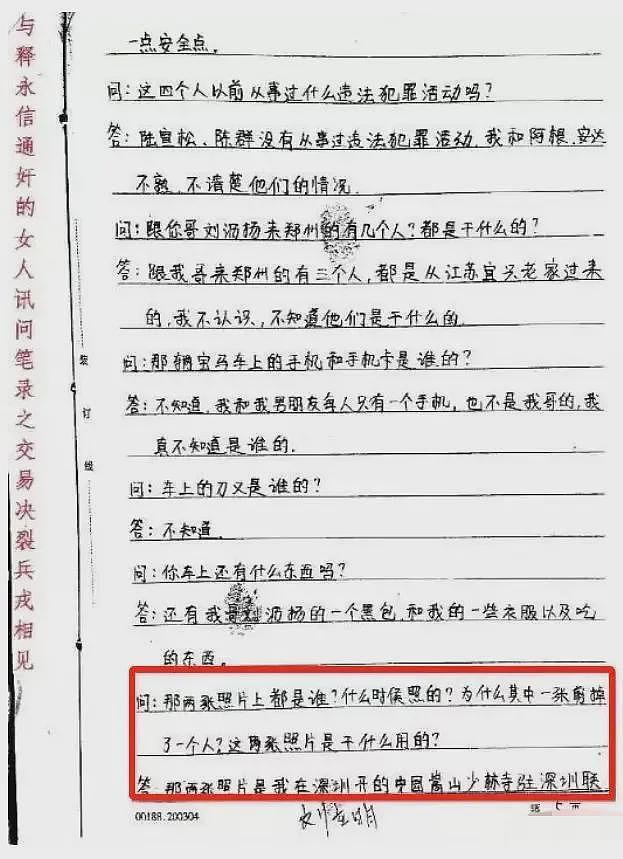 与释永信通奸的女人讯问笔录之交易决裂兵戎相见
一点安全点。
问：这四个人以前从事过什么违法犯罪活动吗？
答：陆宜松、陈群没有从事过违法犯罪活动，我和阿根、安达
不熟，不清楚他们的情况。
问：跟你哥刘沥扬来郑州的有几个人？都是干什么的？
答：跟我哥来郑州的有三个人，都是从江苏宜兴老家过来
的，我不认识，不知道他们是干什么的。
问：那辆宝马车上的手机和手机卡是谁的？
答：不知道，我和我男朋友每人只有一个手机，也不是我哥的，我
真不知道是谁的。
装
订
线
问：车上的刀又是谁的？
答：不知道。
问：你车上还有什么东西吗？
答：还有我哥刘沥扬的一个黑包，和我的一些衣服以及吃
的东西。
问：那两张照片上都是谁？什么时候照的？为什么其中一张剪掉
了一个人？这两张照片是干什么用的？
答：那两张照片是我在深圳开的中国嵩山少林寺驻深圳联
00188.200304
第 5 页